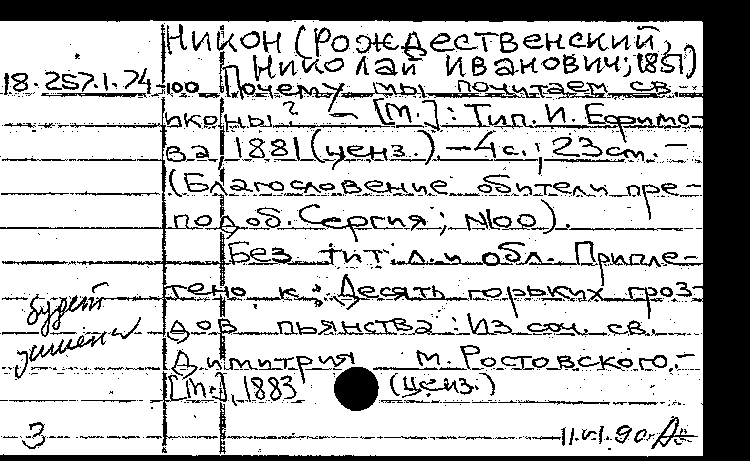 Никон (Рождественский,
Николай Иванович; 1851)
18.257.1.74-100 Почему мы почитаем св.
иконы? — [М.]: Тип. И. Ефимо-
ва, 1881 (ценз.). — 4 с.; 23 см. —
(Благословение обители пре-
подоб. Сергия; №100).
Без тит. л. и обл. Припле-
тено к: Десять горьких гроз-
дов пьянства: Из соч. св.
Димитрия м. Ростовского. —
[М.], 1883 (ценз.)
будет
3
11.VI.90